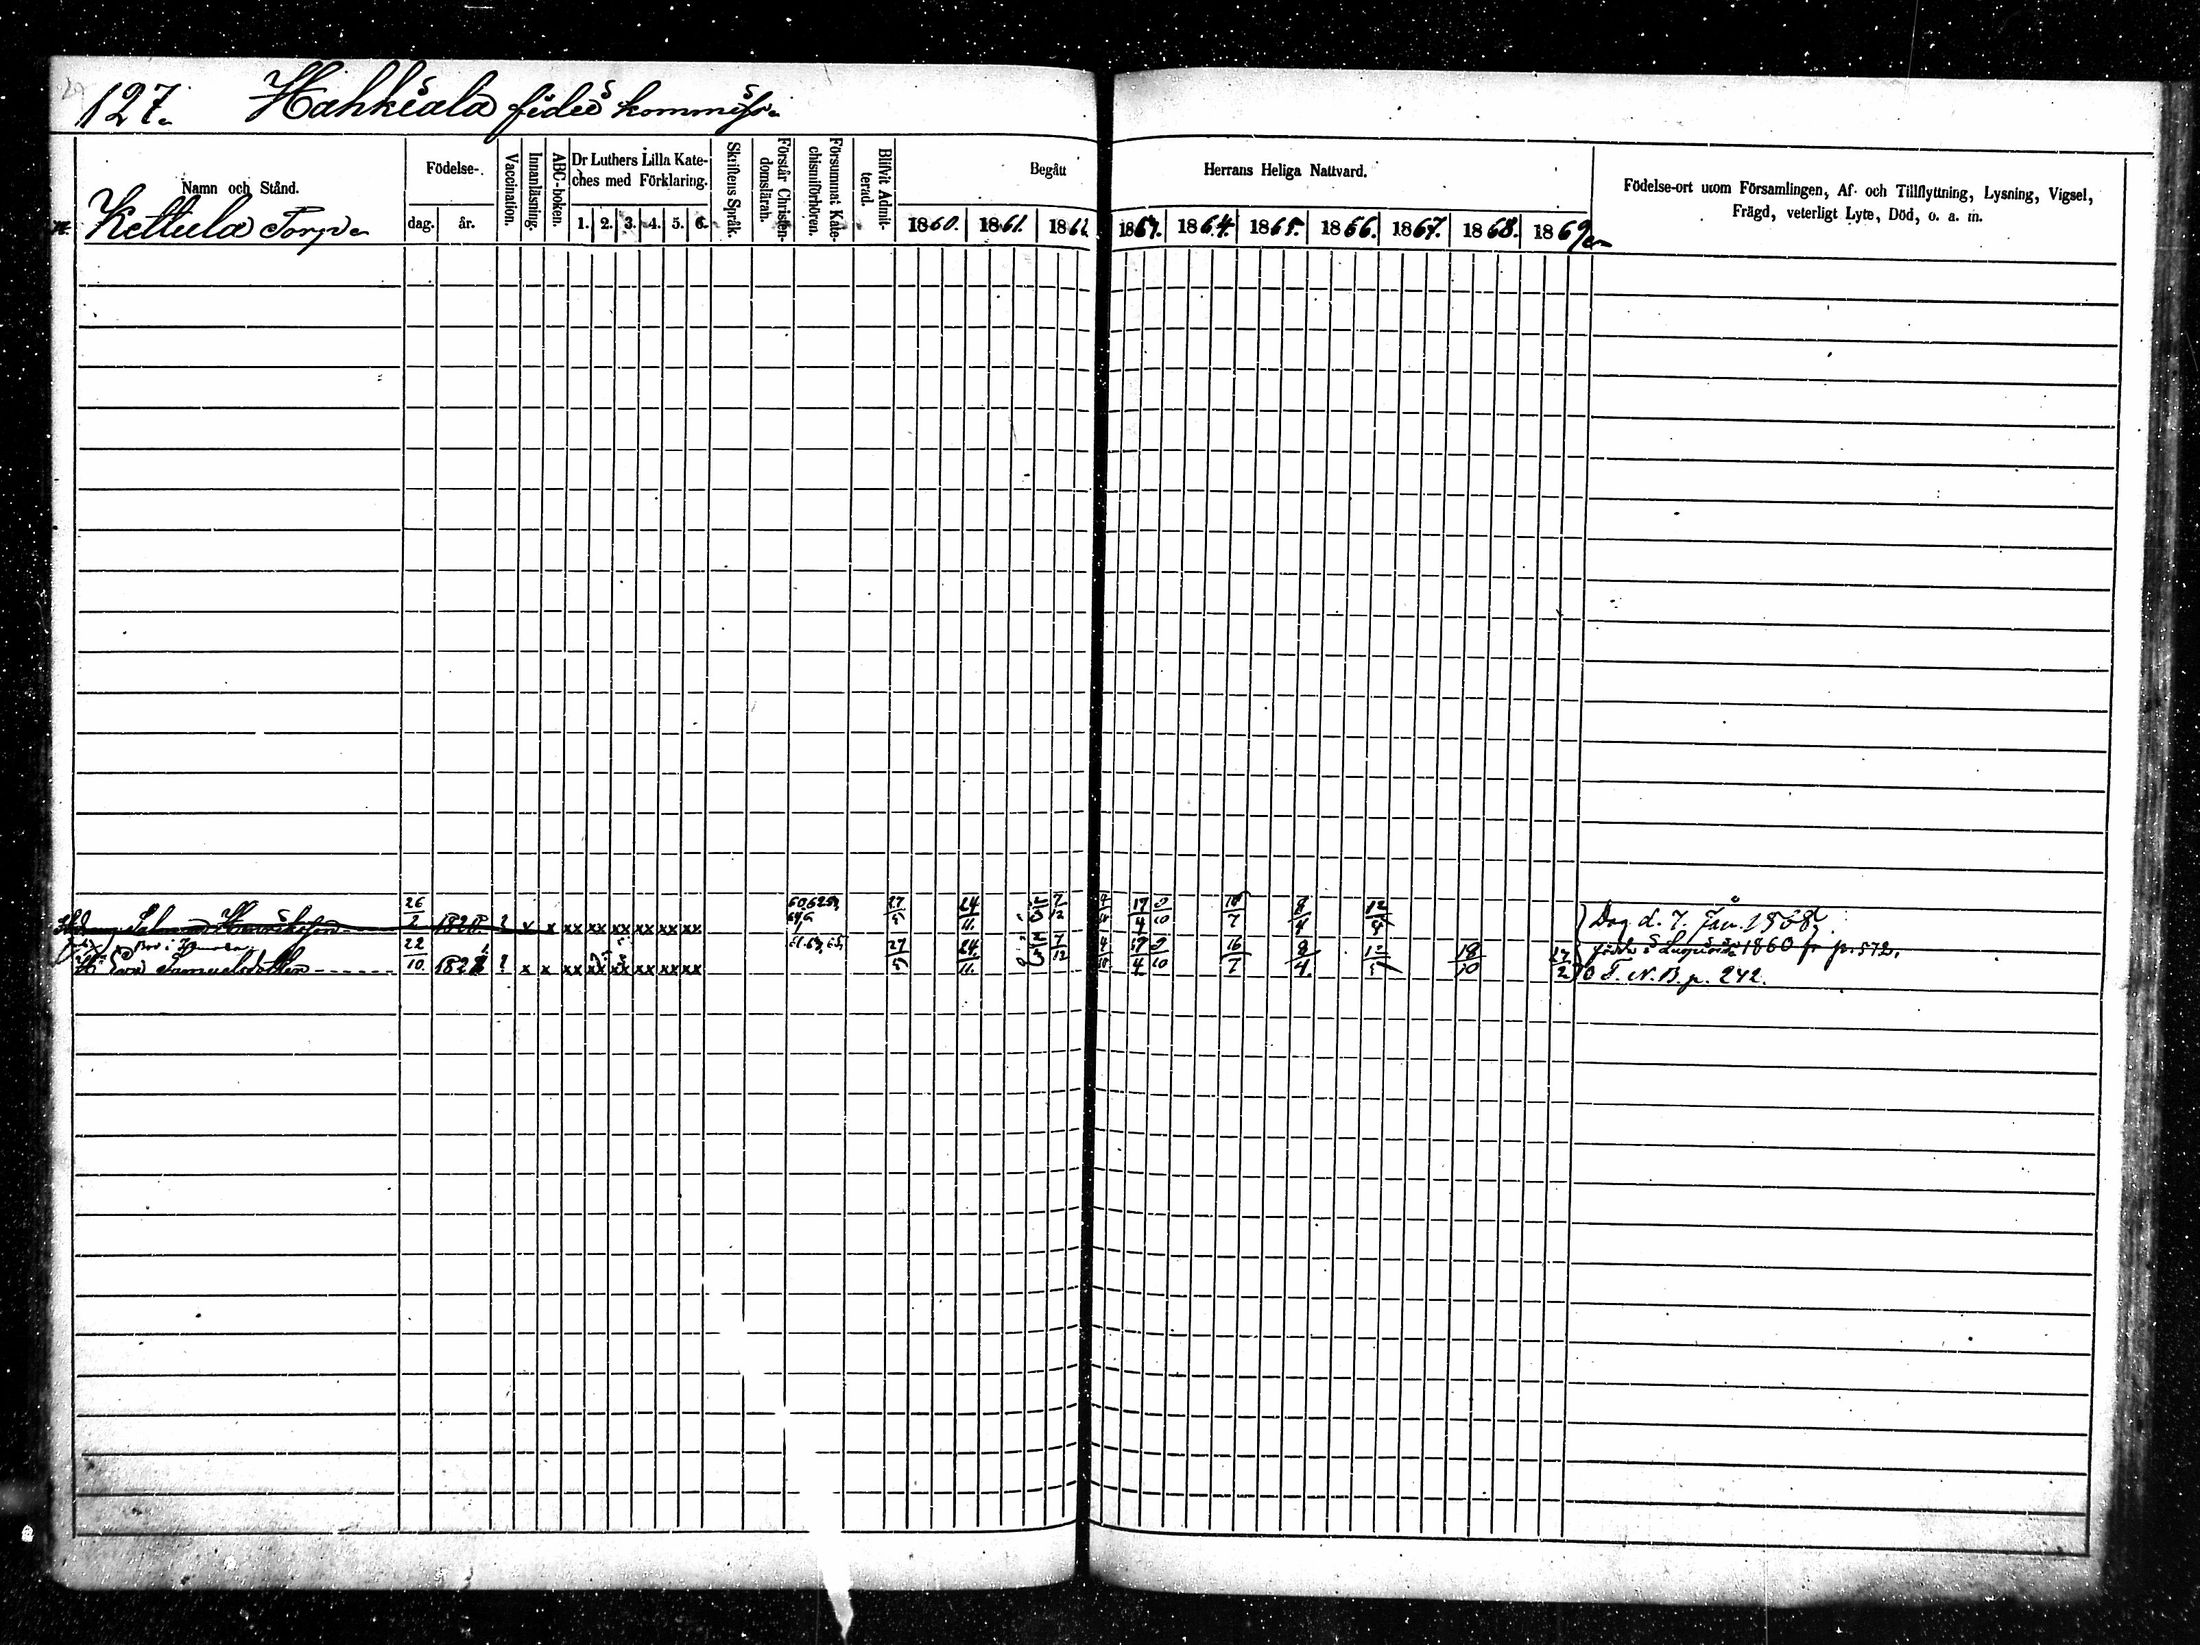 127. Hahkiala fideikommiss.
Namn och Stånd.
Kettula Torp.
Födelse-
dag. år.
Vaccination.
Innanläsning.
ABC-boken.
Dr Luthers Lilla Kate-
ches med Förklaring.
1. 2. 3. 4. 5. 6.
Skriftens Språk.
Förstår Christen-
domslärah.
Försummat Kate-
chismiförhören.
Blifvit Admit-
terad.
Begått Herrans Heliga Nattvard.
1860. 1861. 1862 1863. 1864. 1865. 1866. 1867. 1868. 1869
Födelse-ort utom Församlingen, Af- och Tillflyttning, Lysning, Vigsel,
Frägd, veterligt Lyte, Död, o. a. m.
Salomon Henriksson 26/2 182 ? x x xx xx xx xx xx xx 27/5 24/11 7/12 17/4 9/10 8/4 12/ Dog d. 7. Jan. 1868.
Bor i 1860 fr p. 572.
H. Eva Samuelsdotter 22/10 182 ? x x xx xx xx xx xx xx 27/5 24/11 7/12 17/4 9/10 16/7 8/4 12/5 18/10 27/2 T. N. B. p. 242.